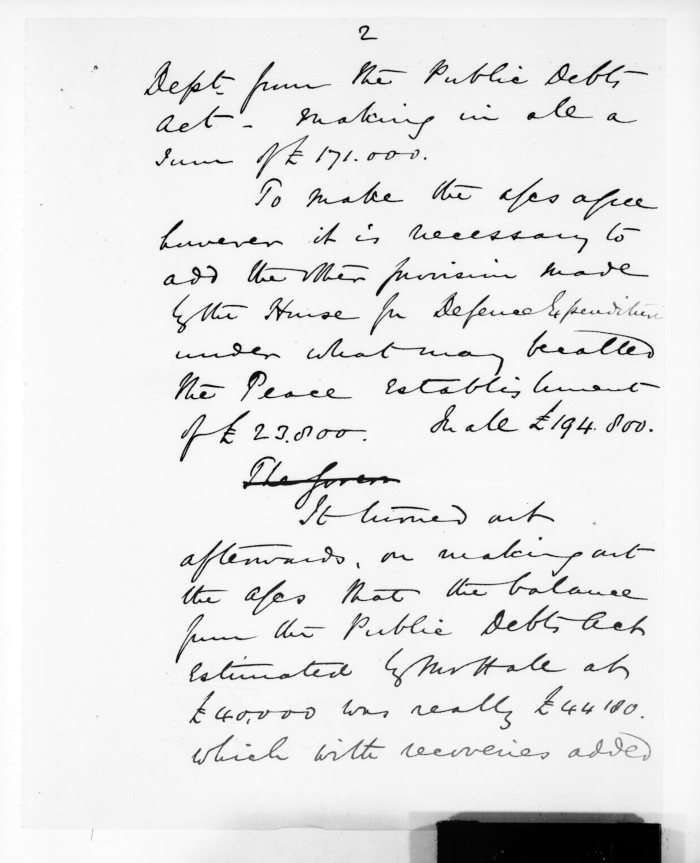 2
Dept. from the Public Debts
Act - making in all a
Sum of £171.000.
To make the a/cs agree
however it is necessary to
add the other provision made
by the House for Defence Expenditure
under what may be called
the Peace Establishment
of £23.800. In all £194.800.
The Govern
It turned out
afterwards, on making out
the a/cs that the balance
from the Public Debts Act
estimated by Mr Hall at
£40,000 was really £44180.
which with recoveries added